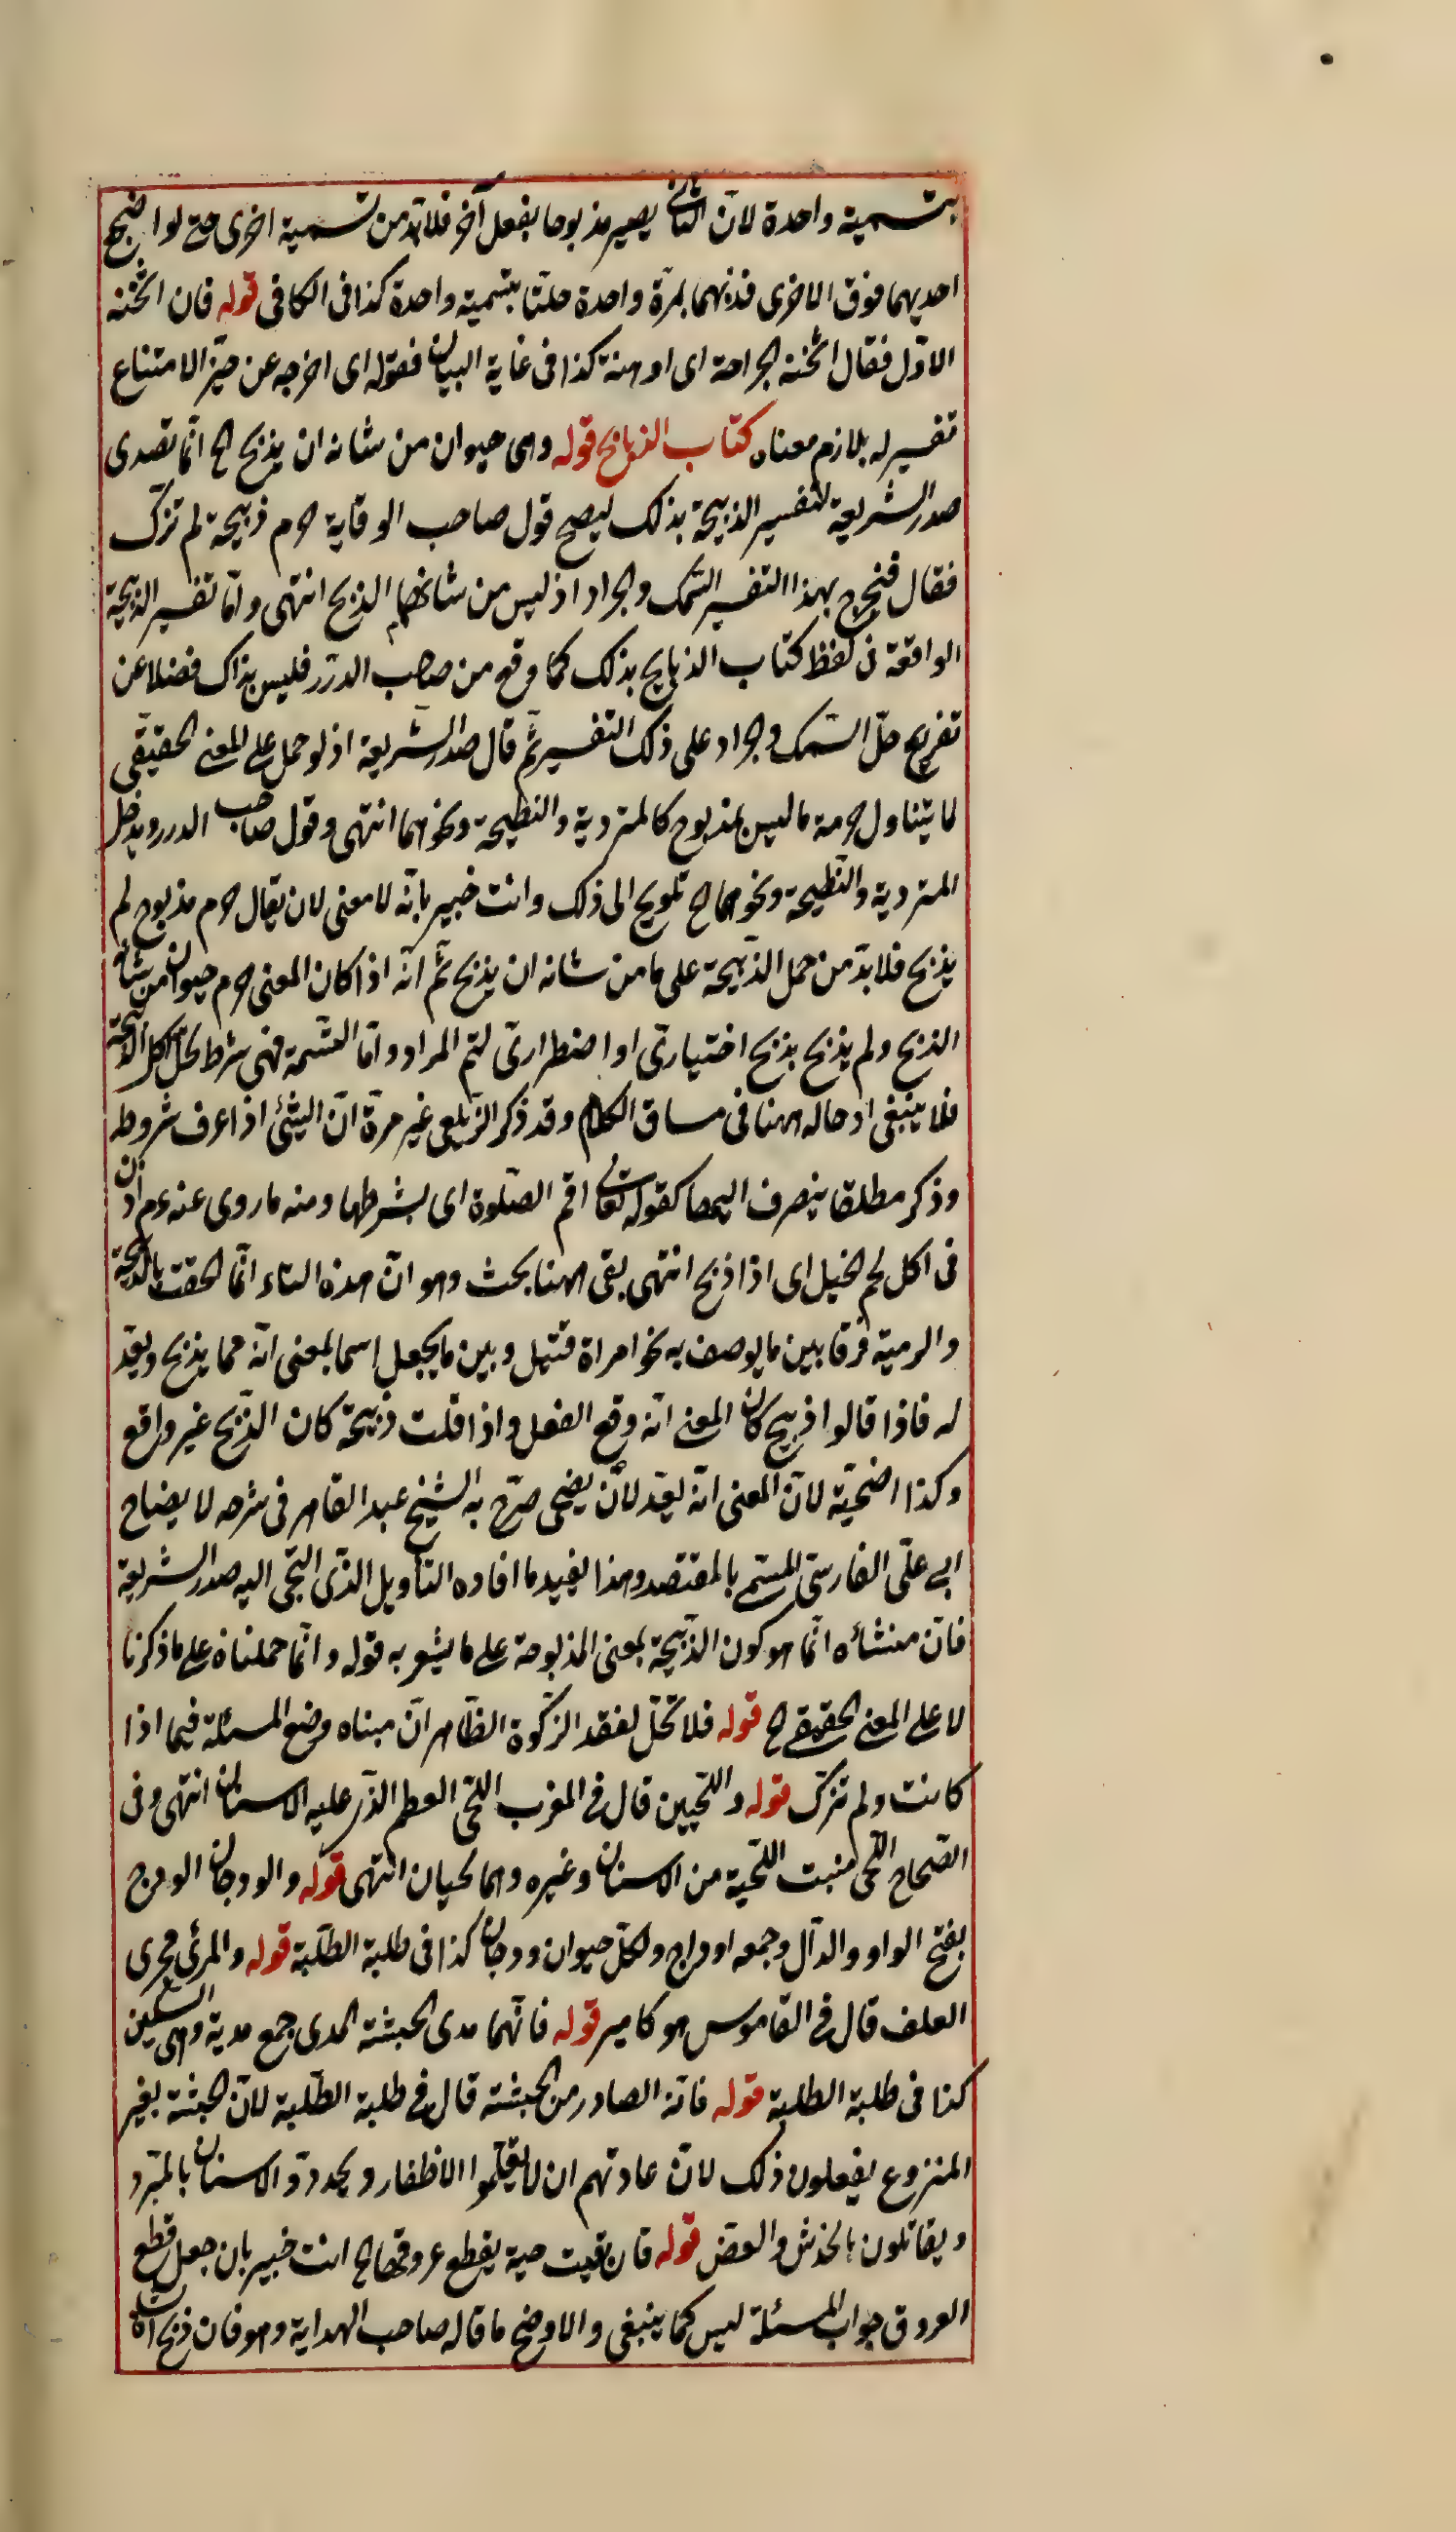 بتسمية واحدة لان الثانى يصير مذبوحا بفعل آخر فلابد من تسمية اخرى حتى لو اضجع
احديهما فوق الاخرى فذبحهما بمرة واحدة حلتا بتسمية واحدة كذا فى الكافى قوله فان اثخنه
الاول فقال اثخنه الجراحة اى اوهنته كذا فى غاية البيان فقوله اى اخرجه عن حيز الامتناع
تفسير له بلازم معناه كتاب الذبايح قوله وهى حيوان من شانه ان يذبح الخ انما تصدى
صدر الشريعة لتفسير الذبيحة بذلك ليصح قول صاحب الوقاية حرم ذبيحة لم تزك
فقال فيخرج بهذا التفسير السمك والجراد اذ ليس من شانهما الذبح انتهى واما تفسير الذبيحة
الواقعة فى لفظ كتاب الذبايح بذلك كما وقع من صاحب الدرر فليس بذاك فضلا عن
تفريع حل السمك والجراد على ذلك التفسير ثم قال صدر الشريعة اذ لو حمل على المعنى الحقيقى
لا يتناول حرمة ما ليس بمذبوح كالمتردية والنطيحة ونحوهما انتهى وقول صاحب الدرر ويدخل
المتردية والنطيحة ونحوهما الخ تلويح الى ذلك وانت خبير بانه لا معنى لان يقال حرم مذبوح لم
يذبح فلا بد من حمل الذبيحة على ما من شانه ان يذبح ثم انه اذا كان المعنى حرم حيوان من شانه
الذبح ولم يذبح بذبح اختيارى او اضطرارى لتم المراد واما التسمية فهى شرط لحل اكل الذبيحة
فلا ينبغى ادخاله ههنا فى مساق الكلام وقد ذكر الزيلعى غير مرة ان الشئ اذا عرف شروطه
وذكر مطلقا ينصرف اليها كقوله تعالى اقم الصلوة اى بشرطها ومنه ما روى عنه عم اذن
فى اكل لحم الخيل اى اذا ذبح انتهى بقى ههنا بحث وهو ان هذه التاء انما الحقت بالذبيحة
والرمية فرقا بين ما يوصف به نحو امراة قتيل وبين ما يجعل اسما بمعنى انه مما يذبح ويعد
له فاذا قالوا ذبيح كان المعنى انه وقع الفعل واذا قلت ذبيحة كان الذبح غير واقع
وكذا اضحية لان المعنى انه يعد لان يضحى صرح به الشيخ عبد القاهر فى شرحه لايضاح
ابى على الفارسى المسمى بالمقتصد وهذا يفيد ما افاده التأويل الذى التجى اليه صدر الشريعة
فان منشأه انما هو كون الذبيحة بمعنى المذبوحة على ما يشعر به قوله وانما حملناه على ما ذكرنا
لا على المعنى الحقيقى الخ قوله فلا تحل لفقد الزكوة الظاهر ان مبناه وضع المسئلة فيما اذا
كانت ولم تزك قوله واللحيين قال فى المغرب اللحى العظم الذى عليه الاسنان انتهى وفى
الصحاح اللحى منبت اللحية من الانسان وغيره وهما لحيان انتهى قوله والودجان الودج
بفتح الواو والدال وجمعه اوداج ولكل حيوان ودجان كذا فى طلبة الطلبة قوله والمرئ مجرى
العلف قال فى القاموس هو كامير قوله فانهما مدى الحبشة المدى جمع مدية وهى السكين
كذا فى طلبة الطلبة قوله فانه الصادر من الحبشة قال فى طلبة الطلبة لان الحبشة بغير
المنزوع يفعلون ذلك لان عادتهم ان لا يقلموا الاظفار ويحددو الاسنان بالمبرد
ويقاتلون بالخدش والعض قوله فان بقيت حية يقطع عروقها الخ انت خبير بان جعل قطع
العروق جواب المسئلة ليس كما ينبغى والاوضح ما قاله صاحب الهداية وهو فان ذبح الشاة